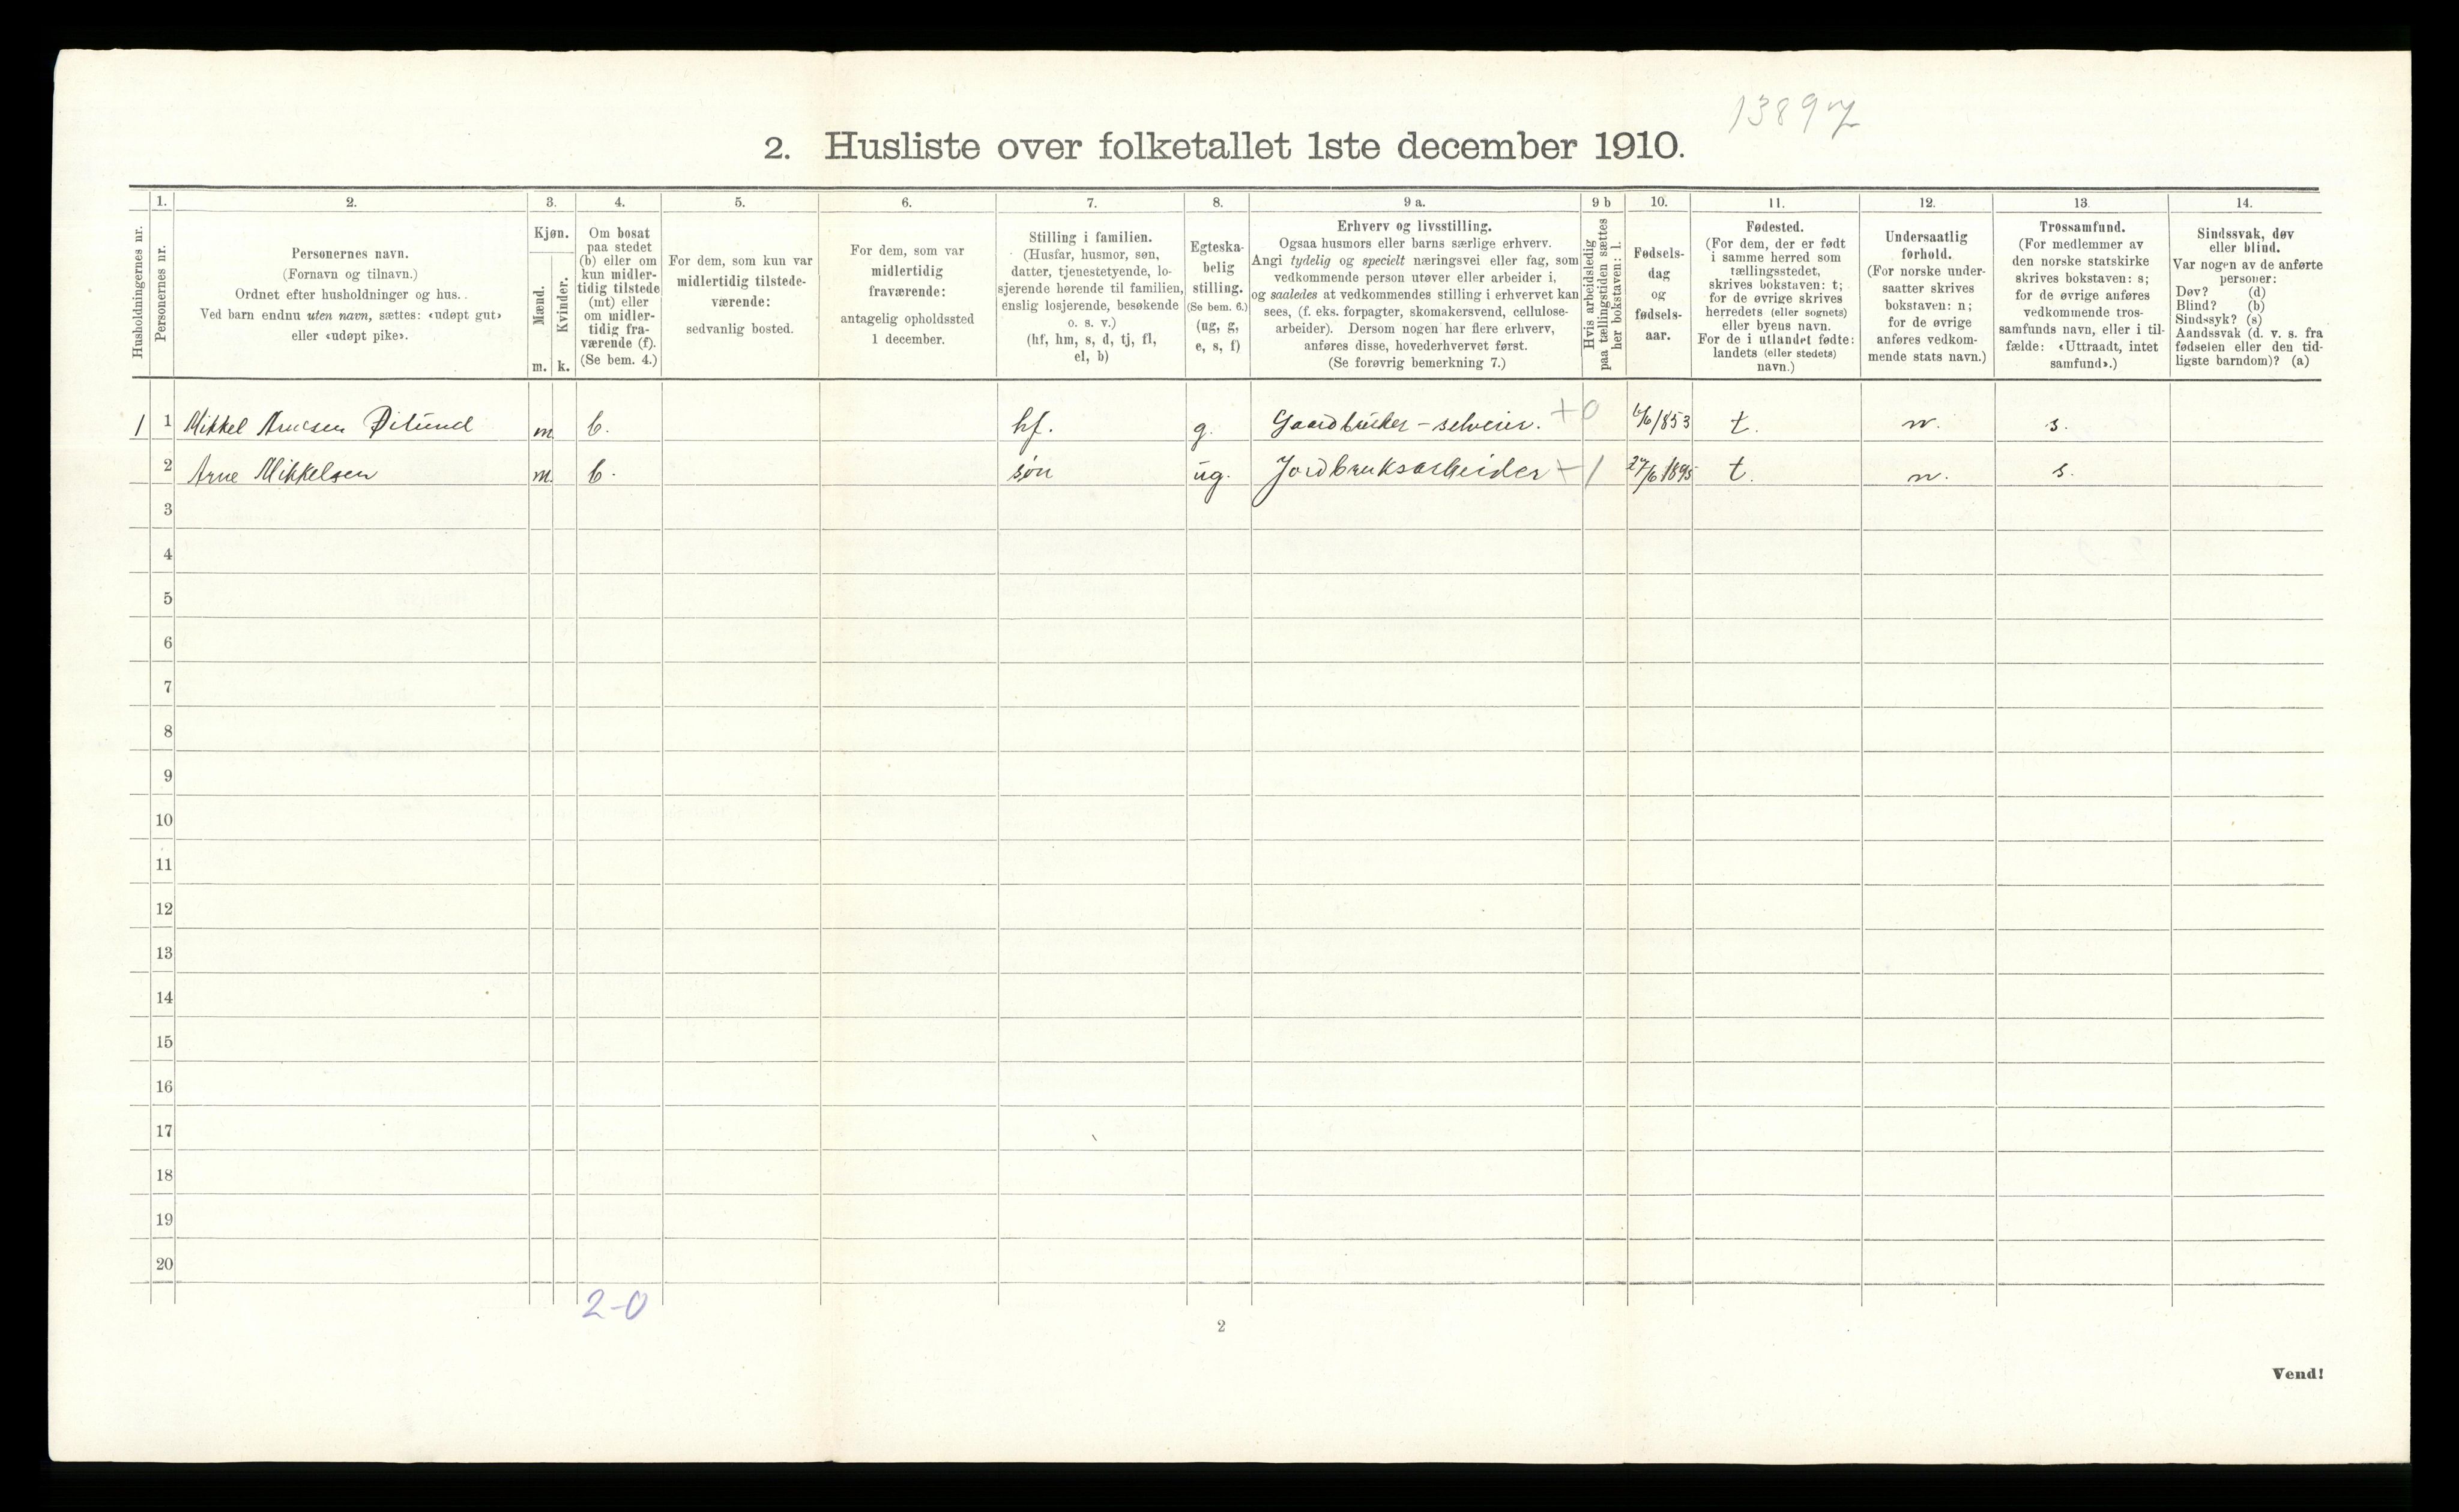 2. Husliste over folketallet 1ste december 1910.
1. 2. 3. 4. 5. 6. 7. 8. 9 a. 9 b 10. 11. 12. 13. 14.
Husholdningernes nr.
Personernes nr.
Personernes navn.
(Fornavn og tilnavn.)
Ordnet efter husholdninger og hus.
Ved barn endnu uten navn, sættes: «udøpt gut»
eller «udøpt pike».
Kjøn.
Mænd.
m.
Kvinder.
k.
Om bosat
paa stedet
(b) eller om
kun midler-
tidig tilstede
(mt) eller
om midler-
tidig fra-
værende (f).
(Se bem. 4.)
For dem, som kun var
midlertidig tilstede-
værende:
sedvanlig bosted.
For dem, som var
midlertidig
fraværende:
antagelig opholdssted
1 december.
Stilling i familien.
(Husfar, husmor, søn,
datter, tjenestetyende, lo-
sjerende hørende til familien,
enslig losjerende, besøkende
o. s. v.)
(hf, hm, s, d, tj, fl,
el, b)
Egteska-
belig
stilling.
(Se bem. 6.)
(ug, g,
e, s, f)
Erhverv og livsstilling.
Ogsaa husmors eller barns særlige erhverv.
Angi tydelig og specielt næringsvei eller fag, som
vedkommende person utøver eller arbeider i,
og saaledes at vedkommendes stilling i erhvervet kan
sees, (f. eks. forpagter, skomakersvend, cellulose-
arbeider). Dersom nogen har flere erhverv,
anføres disse, hovederhvervet først.
(Se forøvrig bemerkning 7.)
Hvis arbeidsledig
paa tællingstiden sættes
her bokstaven: l.
Fødsels-
dag
og
fødsels-
aar.
Fødested.
(For dem, der er født
i samme herred som
tællingsstedet,
skrives bokstaven: t;
for de øvrige skrives
herredets (eller sognets)
eller byens navn.
For de i utlandet fødte:
landets (eller stedets)
navn.)
Undersaatlig
forhold.
(For norske under-
saatter skrives
bokstaven: n;
for de øvrige
anføres vedkom-
mende stats navn.)
Trossamfund.
(For medlemmer av
den norske statskirke
skrives bokstaven: s;
for de øvrige anføres
vedkommende tros-
samfunds navn, eller i til-
fælde: «Uttraadt, intet
samfund».)
Sindssvak, døv
eller blind.
Var nogen av de anførte
personer:
Døv? (d)
Blind? (b)
Sindssyk? (s)
Aandssvak (d. v. s. fra
fødselen eller den tid-
ligste barndom)? (a)
1 1 Mikkel Arnesen m b. hf. g. Gaardbruker - selveier. +0 t. n. s.
2 Arne Mikkelsen m. b. søn ug. Jordbruksarbeider 27/6 1895 t. n. s.
3
4
5
6
7
8
9
10
11
12
13
14
15
16
17
18
19
20
2-0
2
Vend!